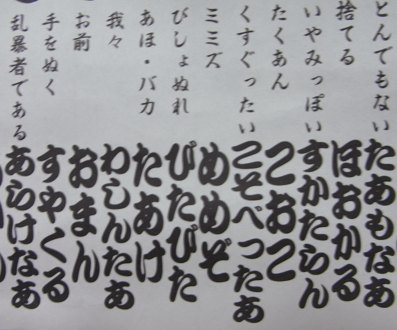 とんでもない たあもなあ
捨てる ほおかる
いやみっぽい すかたらん
たくあん こおこ
くすぐったい こそべったあ
ミミズ めめぞ
びしょぬれ びたびた
あほ・バカ たあけ
我々 わしんたあ
お前 おまん
手をぬく すやくる
乱暴者である あらけなあ